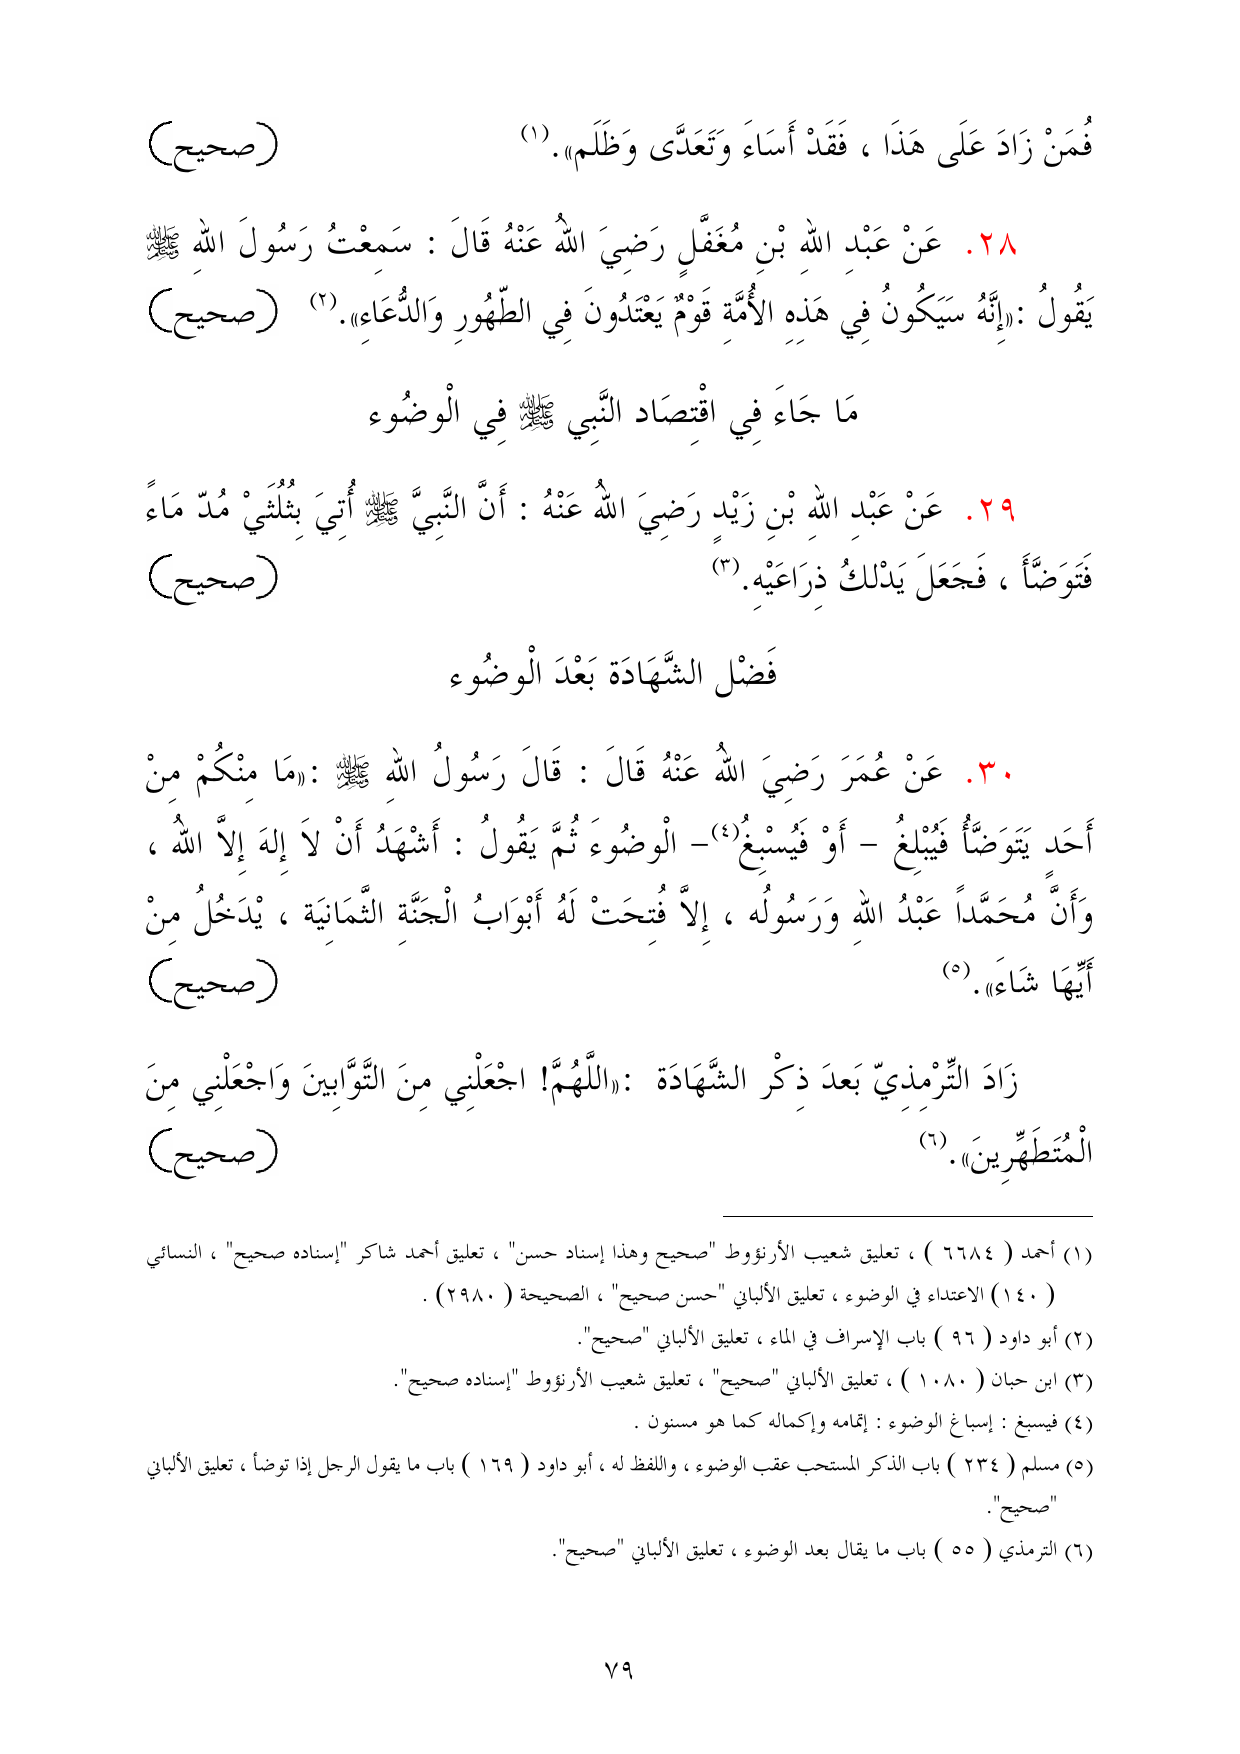 فَمَنْ زَادَ عَلَى هَذَا ، فَقَدْ أَسَاءَ وَتَعَدَّى وَظَلَم».(١) (صحيح)
٢٨. عَنْ عَبْدِ اللهِ بْنِ مُغَفَّلٍ رَضِيَ اللهُ عَنْهُ قَالَ : سَمِعْتُ رَسُولَ اللهِ ﷺ
يَقُولُ :«إِنَّهُ سَيَكُونُ فِي هَذِهِ الأُمَّةِ قَوْمٌ يَعْتَدُونَ فِي الطّهُورِ وَالدُّعَاءِ».(٢) (صحيح)
مَا جَاءَ فِي اقْتِصَاد النَّبِي ﷺ فِي الْوضُوء
٢٩. عَنْ عَبْدِ اللهِ بْنِ زَيْدٍ رَضِيَ اللهُ عَنْهُ : أَنَّ النَّبِيَّ ﷺ أُتِيَ بِثُلُثَيْ مُدّ مَاءً
فَتَوَضَّأَ ، فَجَعَلَ يَدْلكُ ذِرَاعَيْهِ.(٣) (صحيح)
فَضْل الشَّهَادَة بَعْدَ الْوضُوء
٣٠. عَنْ عُمَرَ رَضِيَ اللهُ عَنْهُ قَالَ : قَالَ رَسُولُ اللهِ ﷺ :«مَا مِنْكُمْ مِنْ
أَحَدٍ يَتَوَضَّأُ فَيُبْلِغُ – أَوْ فَيُسْبِغُ(٤)– الْوضُوءَ ثُمَّ يَقُولُ : أَشْهَدُ أَنْ لاَ إِلهَ إِلاَّ اللهُ ،
وَأَنَّ مُحَمَّداً عَبْدُ اللهِ وَرَسُولُه ، إِلاَّ فُتِحَتْ لَهُ أَبْوَابُ الْجَنَّةِ الثَّمَانِيَة ، يْدَخُلُ مِنْ
أَيِّهَا شَاءَ».(٥) (صحيح)
زَادَ التِّرْمِذِيّ بَعدَ ذِكْر الشَّهَادَة :«اللَّهُمَّ! اجْعَلْنِي مِنَ التَّوَّابِينَ وَاجْعَلْنِي مِنَ
الْمُتَطَهِّرِينَ».(٦) (صحيح)
(١) أحمد ( ٦٦٨٤ ) ، تعليق شعيب الأرنؤوط "صحيح وهذا إسناد حسن" ، تعليق أحمد شاكر "إسناده صحيح" ، النسائي
( ١٤٠ ) الاعتداء في الوضوء ، تعليق الألباني "حسن صحيح" ، الصحيحة ( ٢٩٨٠ ) .
(٢) أبو داود ( ٩٦ ) باب الإسراف في الماء ، تعليق الألباني "صحيح".
(٣) ابن حبان ( ١٠٨٠ ) ، تعليق الألباني "صحيح" ، تعليق شعيب الأرنؤوط "إسناده صحيح".
(٤) فيسبغ : إسباغ الوضوء : إتمامه وإكماله كما هو مسنون .
(٥) مسلم ( ٢٣٤ ) باب الذكر المستحب عقب الوضوء ، واللفظ له ، أبو داود ( ١٦٩ ) باب ما يقول الرجل إذا توضأ ، تعليق الألباني
"صحيح".
(٦) الترمذي ( ٥٥ ) باب ما يقال بعد الوضوء ، تعليق الألباني "صحيح".
٧٩